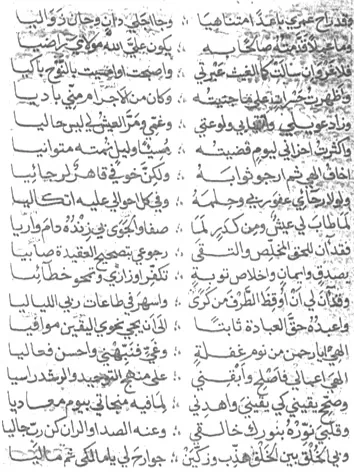 وقد راح عمري باغذا متناهيا ∴ وجا اجلي دان وحان زواليا
وما عملا قدمته صالحا به ∴ يكون على الله مولاي راضيا
فلا غرو ان سالت كالغيث عبرتي ∴ واصبحت وامسيت بالنوح باكيا
وظهرت حسراتي على ما جنيته ∴ وكان من الاجرام مني باديا
وزاد عويلي وانتحابي ولوعتي ∴ وغمي ومر العيش لي ليس حاليا
واكثرت احزاني ليوم قضيته ∴ مسيئا وليل نمته متوانيا
اخاف الهي ثم ارجو ثوابه ∴ ولكن خوفي قاهر لرجائيا
ولولا رجائي عفو ربي وحلمه ∴ وفي كل احوالي عليه اتكاليا
لما طاب لي عيش ومن كدر لما ∴ صفا والجوى بي زنده دام واريا
فقد آن للمحو المخلص والتقى ∴ رجوعي تصحيح العقيدة صائبا
بصدق وايمان واخلاص توبة ∴ تكفر اوزاري وتمحو خطائيا
وقد آن لي ان اوقظ الطرف من كرى ∴ واسهر في طاعات ربي اللياليا
واعبده حق العبادة ثابتا ∴ الى ان يجي نحوي اليقين موافيا
الهي ايا رحمن من نوم غفلة ∴ وغي فنبهني واحسن فعاليا
الهي عيالي فاصلح وابقني ∴ على منهج التوحيد والرشد راسيا
وصحح يقيني كي يقيني واهدني ∴ لما فيه منجاتي بيوم معاديا
وقلبي نوره بنورك خالقي ∴ وعنه الصدا والران كن رب جاليا
وبي الخلق بين الخلق هذب وزكين ∴ جوارح لي يا مالكي ثم باليا